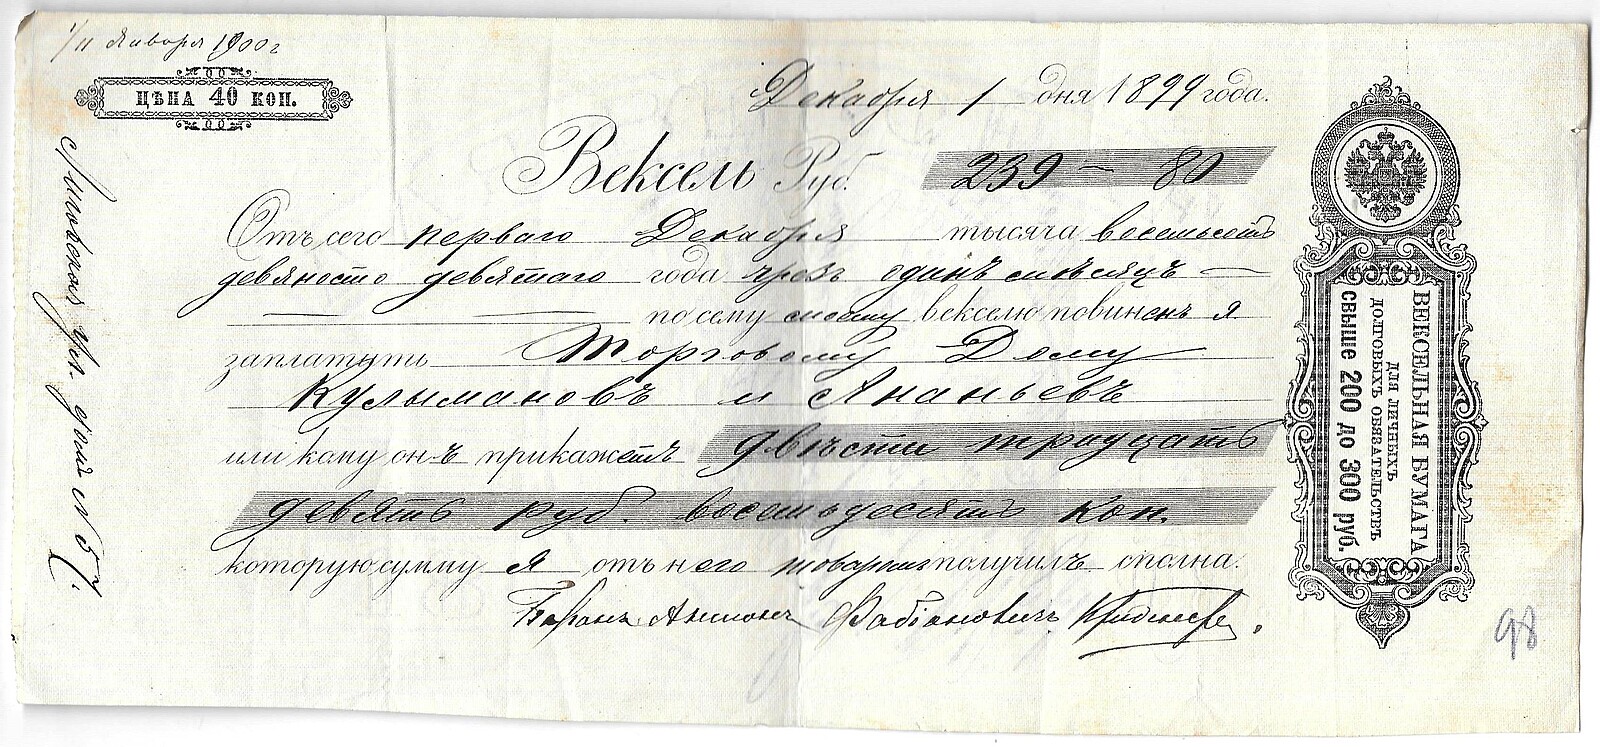 1/11 Января 1900 г
ЦѢНА 40 КОП.
Декабря 1 дня 1899 года.
Вексель Руб. 239 – 80
Отъ сего перваго Декабря тысяча восемьсотъ
девяносто девятаго года чрезъ одинъ мѣсяцъ —
по сему моему векселю повиненъ я
заплатить Торговому Дому
Кулымановъ и Ананьевъ
или кому онъ прикажетъ двѣсти тридцать
девять руб. восемьдесятъ коп.
которую сумму я отъ него товаромъ получилъ сполна.
Баронъ Антонъ Фабіановичъ
ВЕКСЕЛЬНАЯ БУМАГА
ДЛЯ ЛИЧНЫХЪ
ДОЛГОВЫХЪ ОБЯЗАТЕЛЬСТВЪ
СВЫШЕ 200 ДО 300 РУБ.
ул. домъ № 57.
98